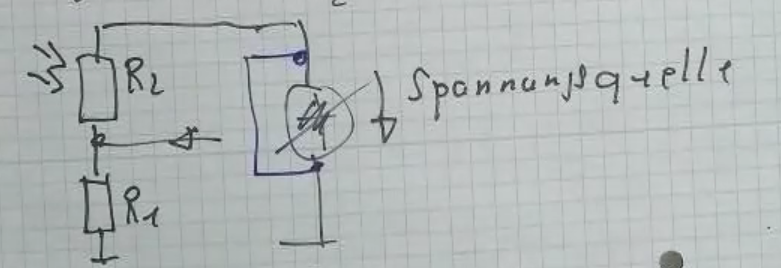 R2
Spannungsquelle
R1